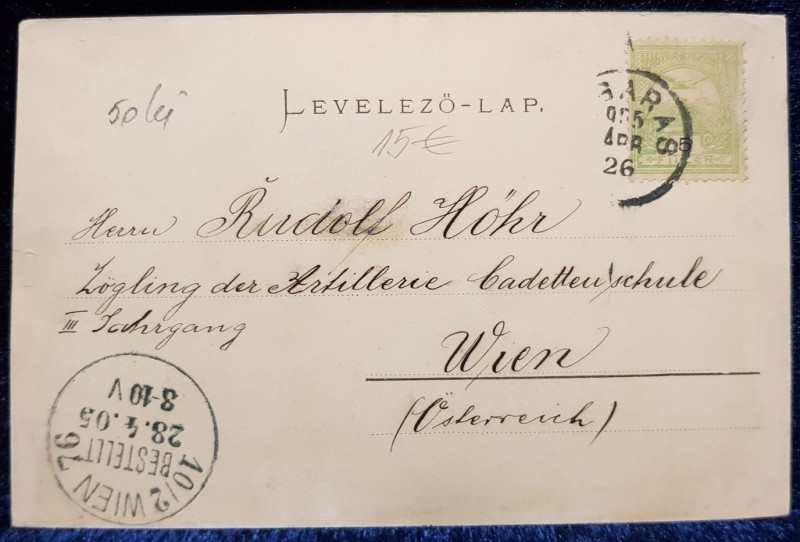 50 lei
LEVELEZŐ-LAP.
15€
ARAS
905
APR
26
5
FILLER
Herrn Rudolf Höhr
Zögling der Artillerie Cadettenschule
III Jahrgang
Wien
(Österreich)
10/2 WIEN 76
BESTELLT
28.4.05
8-10 V